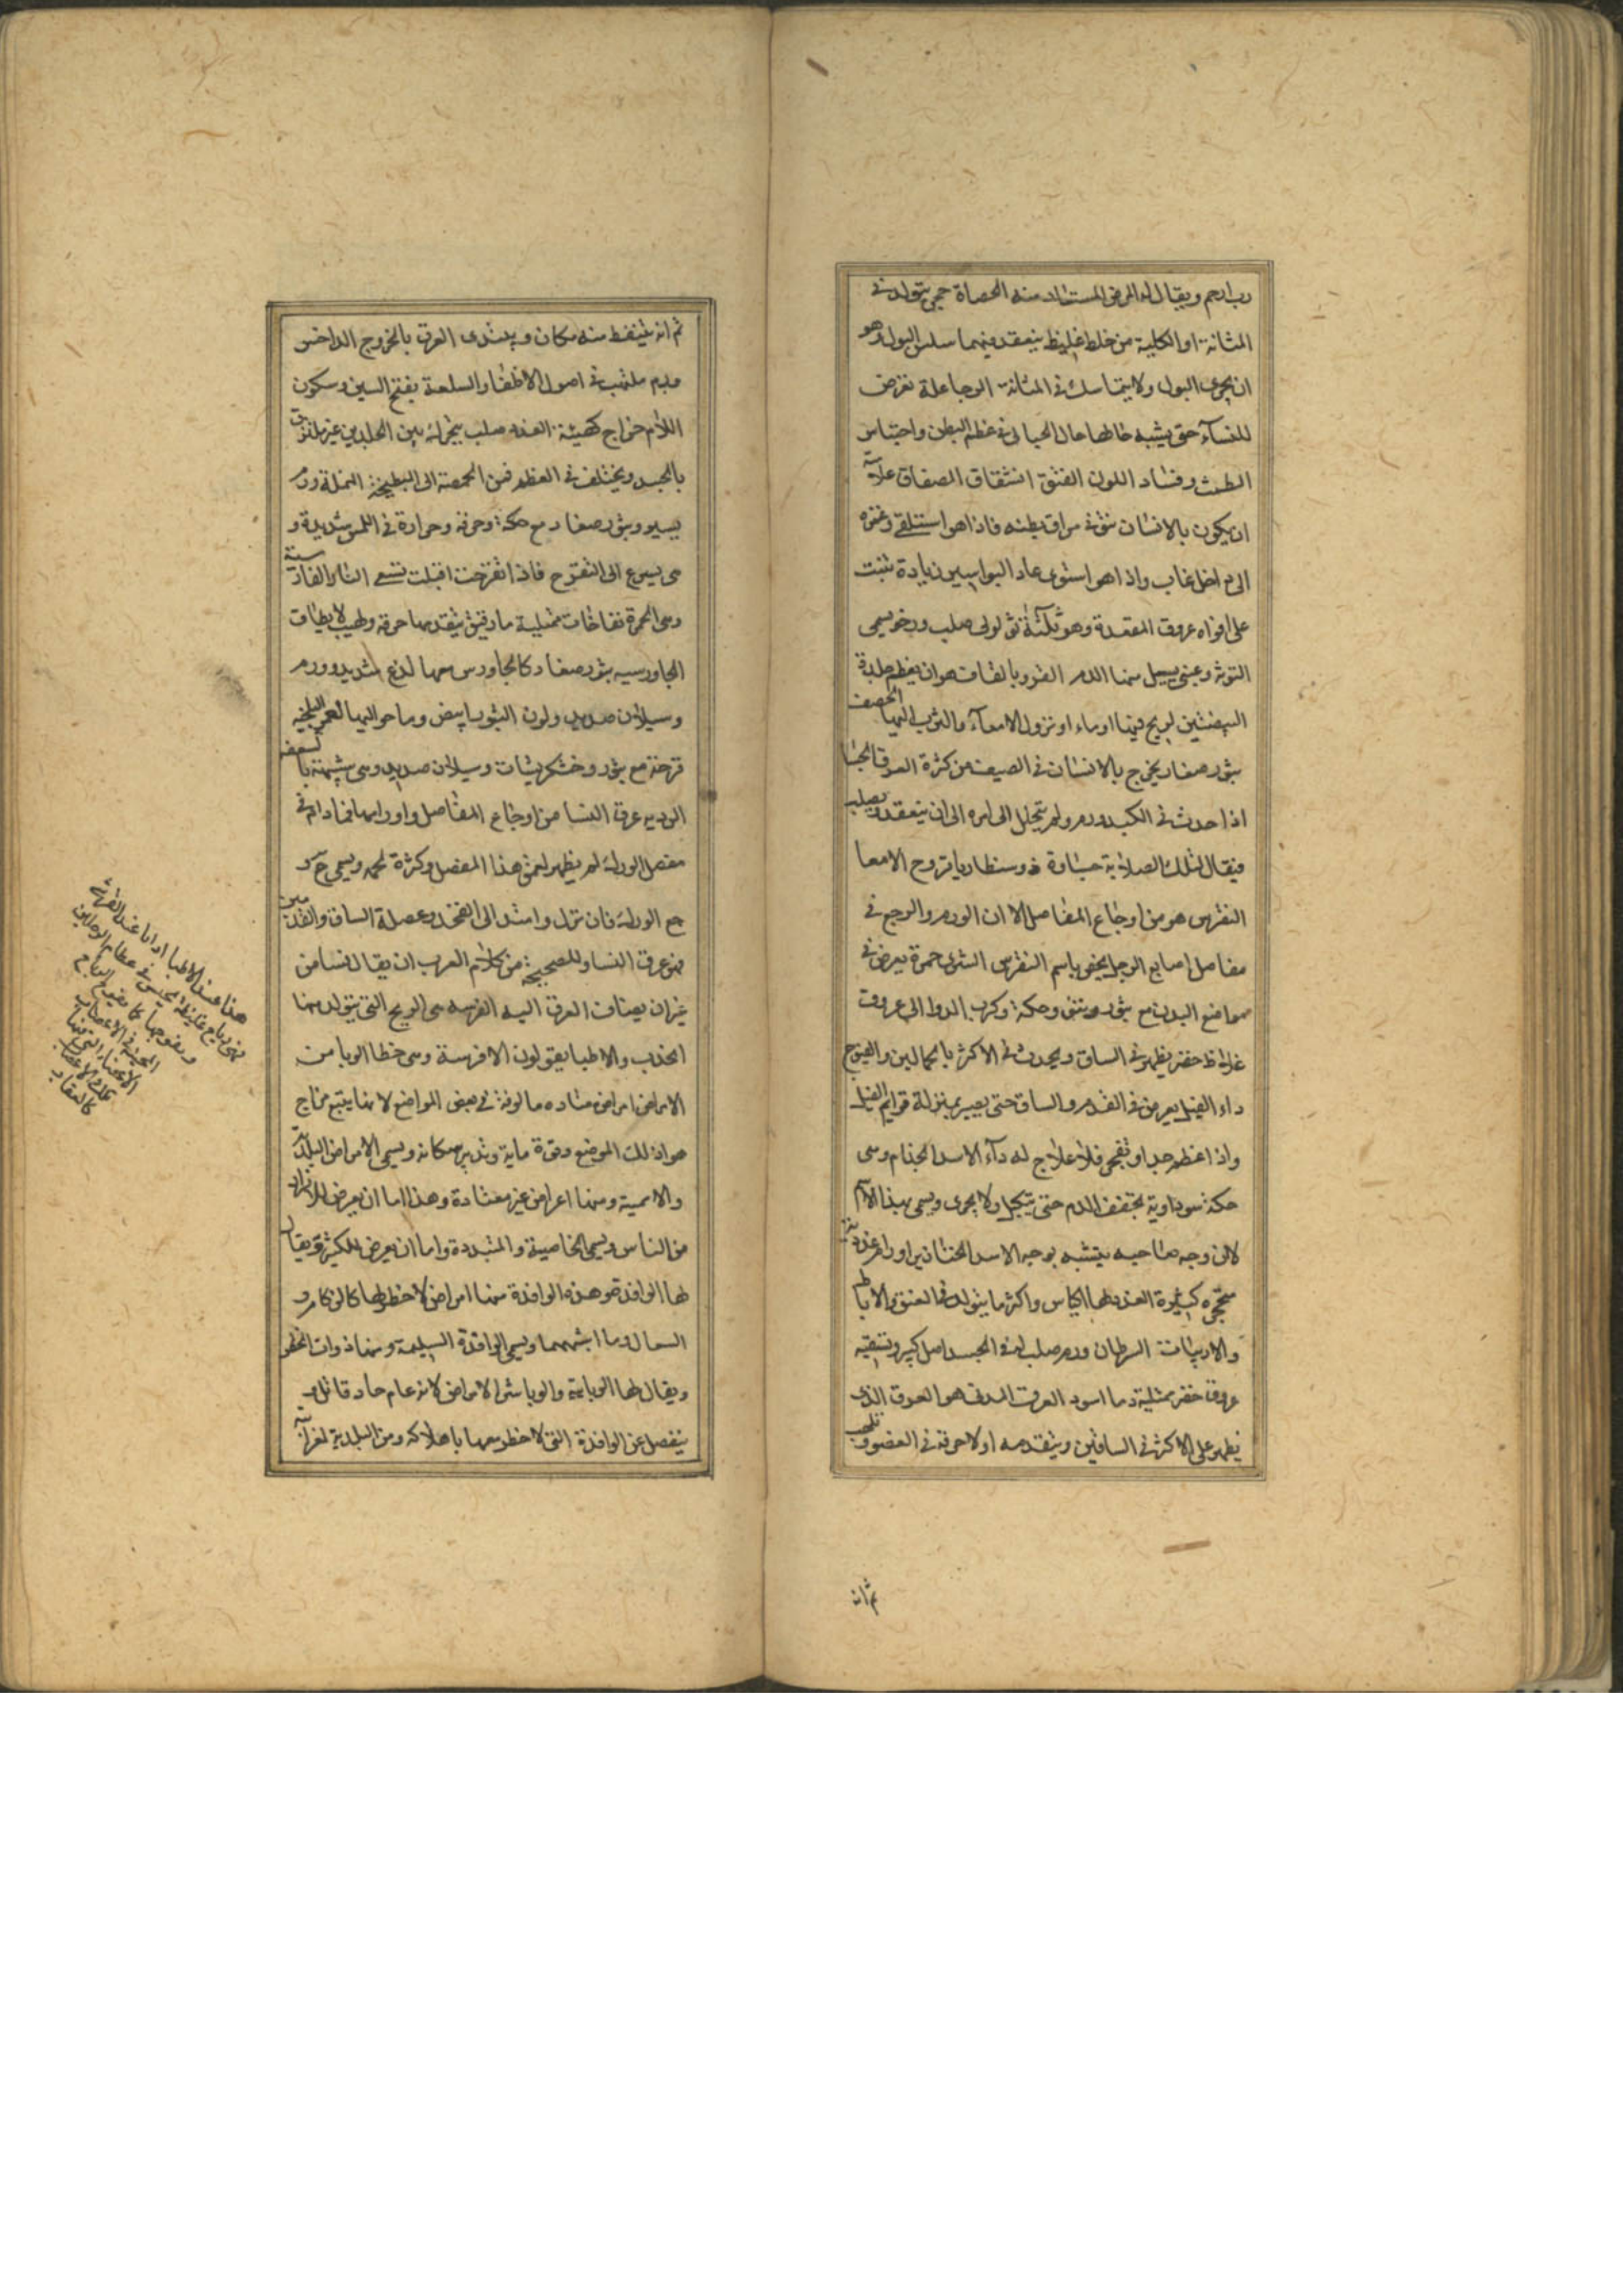 دياجم ويقال له المرض المستفاد منه الحصاة حجر يتولد في
المثانة او الكلية من خلط غليظ ينعقد فيهما سلس البول هو
ان يجرى البول ولا يتماسك في المثانة الرجا علة تعرض
للنسآء حتى يشبه حالها حال الحبالى في عظم البطن واحتباس
الطمث وفساد اللون الفتق انشقاق الصفاق علامته
ان يكون بالانسان نتو في مراق بطنه فاذا هو استلقى وغمزه
الى داخل غاب واذا هو استوى عاد البواسير زيادة تنبت
على افواه عروق المقعدة وهو ثلثة ثؤلولى صلب ورخو يسمى
التوثى وعنبى يسيل منها الدم القرو بالقاف هو ان يعظم جلدة
البيضتين لريح فيها او ماء او نزول الامعآء والثرب اليها الحصف
بثور صغار يخرج بالانسان في الصيف من كثرة العرق الجسا
اذا حدث في الكبد ورم ولم يتحلل الى امره الى ان ينعقد ويصلب
فيقال لتلك الصلابة جساوة ذوسنطاريا قروح الامعا
النقرس هو من اوجاع المفاصل الا ان الورم والوجع في
مفاصل اصابع الرجل يخص باسم النقرس الشرى حمرة يعرض في
مواضع البدن مع بثور ونتو وحكة وكرب الدوالى عروق
غلاظ خضر يظهر في الساق ويحدث في الاكثر بالحمالين والفيوج
داء الفيل يعرض في القدم والساق حتى يصير بمنزلة قوايم الفيل
واذا عظم جدا وتقيح فلا علاج له دآء الاسد الجذام وهى
حكة سوداوية تجفف الدم حتى يتكتل ولا يجرى ويسمى بهذا الاسم
لان وجه صاحبه يشبه بوجه الاسد الخنازير اورام غددية
متحجره كبيرة العدد لها اكياس واكثر ما يتولد في العنق والاباط
والاربيات السرطان ورم صلب له في الجسد اصل كبير وتسقيه
عروق خضر ممتلية دما اسود العرق المدنى هو العرق الذى
يظهر على الاكثر في الساقين ويتقدمه اولا حرقة في العضو وتلهب
ثم انه
ثم انه يتنفط منه مكان ويبتدى العرق بالخروج الداخس
ورم ملتهب في اصول الاظفار السلعة بفتح السين وسكون
اللام خراج كهيئة الغدد صلب يتحرك بين الجلدين غير ملتزق
بالجسد ويختلف في العظم فمن الحمصة الى البطيخة النملة ورم
يسير وبثور صغار مع حكة وحرقة وحرارة في اللمس شديدة و
هى يسرع الى التقرح فاذا تقرحت اقبلت تسعى النار الفارسية
وهى الحمرة نفاخات ممتلية ما رقيق يتقدمها حرقة ولهيب لا يطاق
الجاورسيه بثور صغار كالجاورس معها لذع شديد وورم
وسيلان صديد ولون البثور ابيض وما حواليها احمر البلخيه
قرحة مع بثور وخشكريشات وسيلان صديد وهى شبيهة بالسعفة
الرديه عرق النسا من اوجاع المفاصل واورامها فما دام في
مفصل الورك لم يظهر لعمق هذا المفصل وكثرة لحمه ويسمى
وجع الورك فان نزل وامتد الى الفخذ وعضلة الساق والقدمين
فهو عرق النسا وللصحيحة من كلام العرب ان يقال نسا من
غير ان يضاف العرق اليه الفرسه هى الريح التى يتولد منها
الحدب والاطبا يقولون الافرسة وهى خطا الوبا من
الامراض امراض معتاده مالوفة في بعض المواضع لانها يتبع مزاج
هوا ذلك الموضع وقوة مايه وتدبير سكانه ويسمى الامراض البلدية
والاممية ومنها اعراض غير معتادة وهذا اما ان يعرض للافراد
من الناس ويسمى الخاصية والمتبددة واما ان يعرض للكثير ويقال
لها الوافدة وهذه الوافدة منها امراض لا خطر لها كالزكام و
السعال وما اشبههما ويسمى الوافدة السليمة ومنها ذوات الخطر
ويقال لها الوبائية والوبا شر الامراض لانه عام حاد قاتل
ينفصل عن الوافدة التى لا خطر معها باهلاكه ومن البلدية لغرابته
هذا عند الاطبا واما عند
فهى رياح غليظة يحتبس في عظام